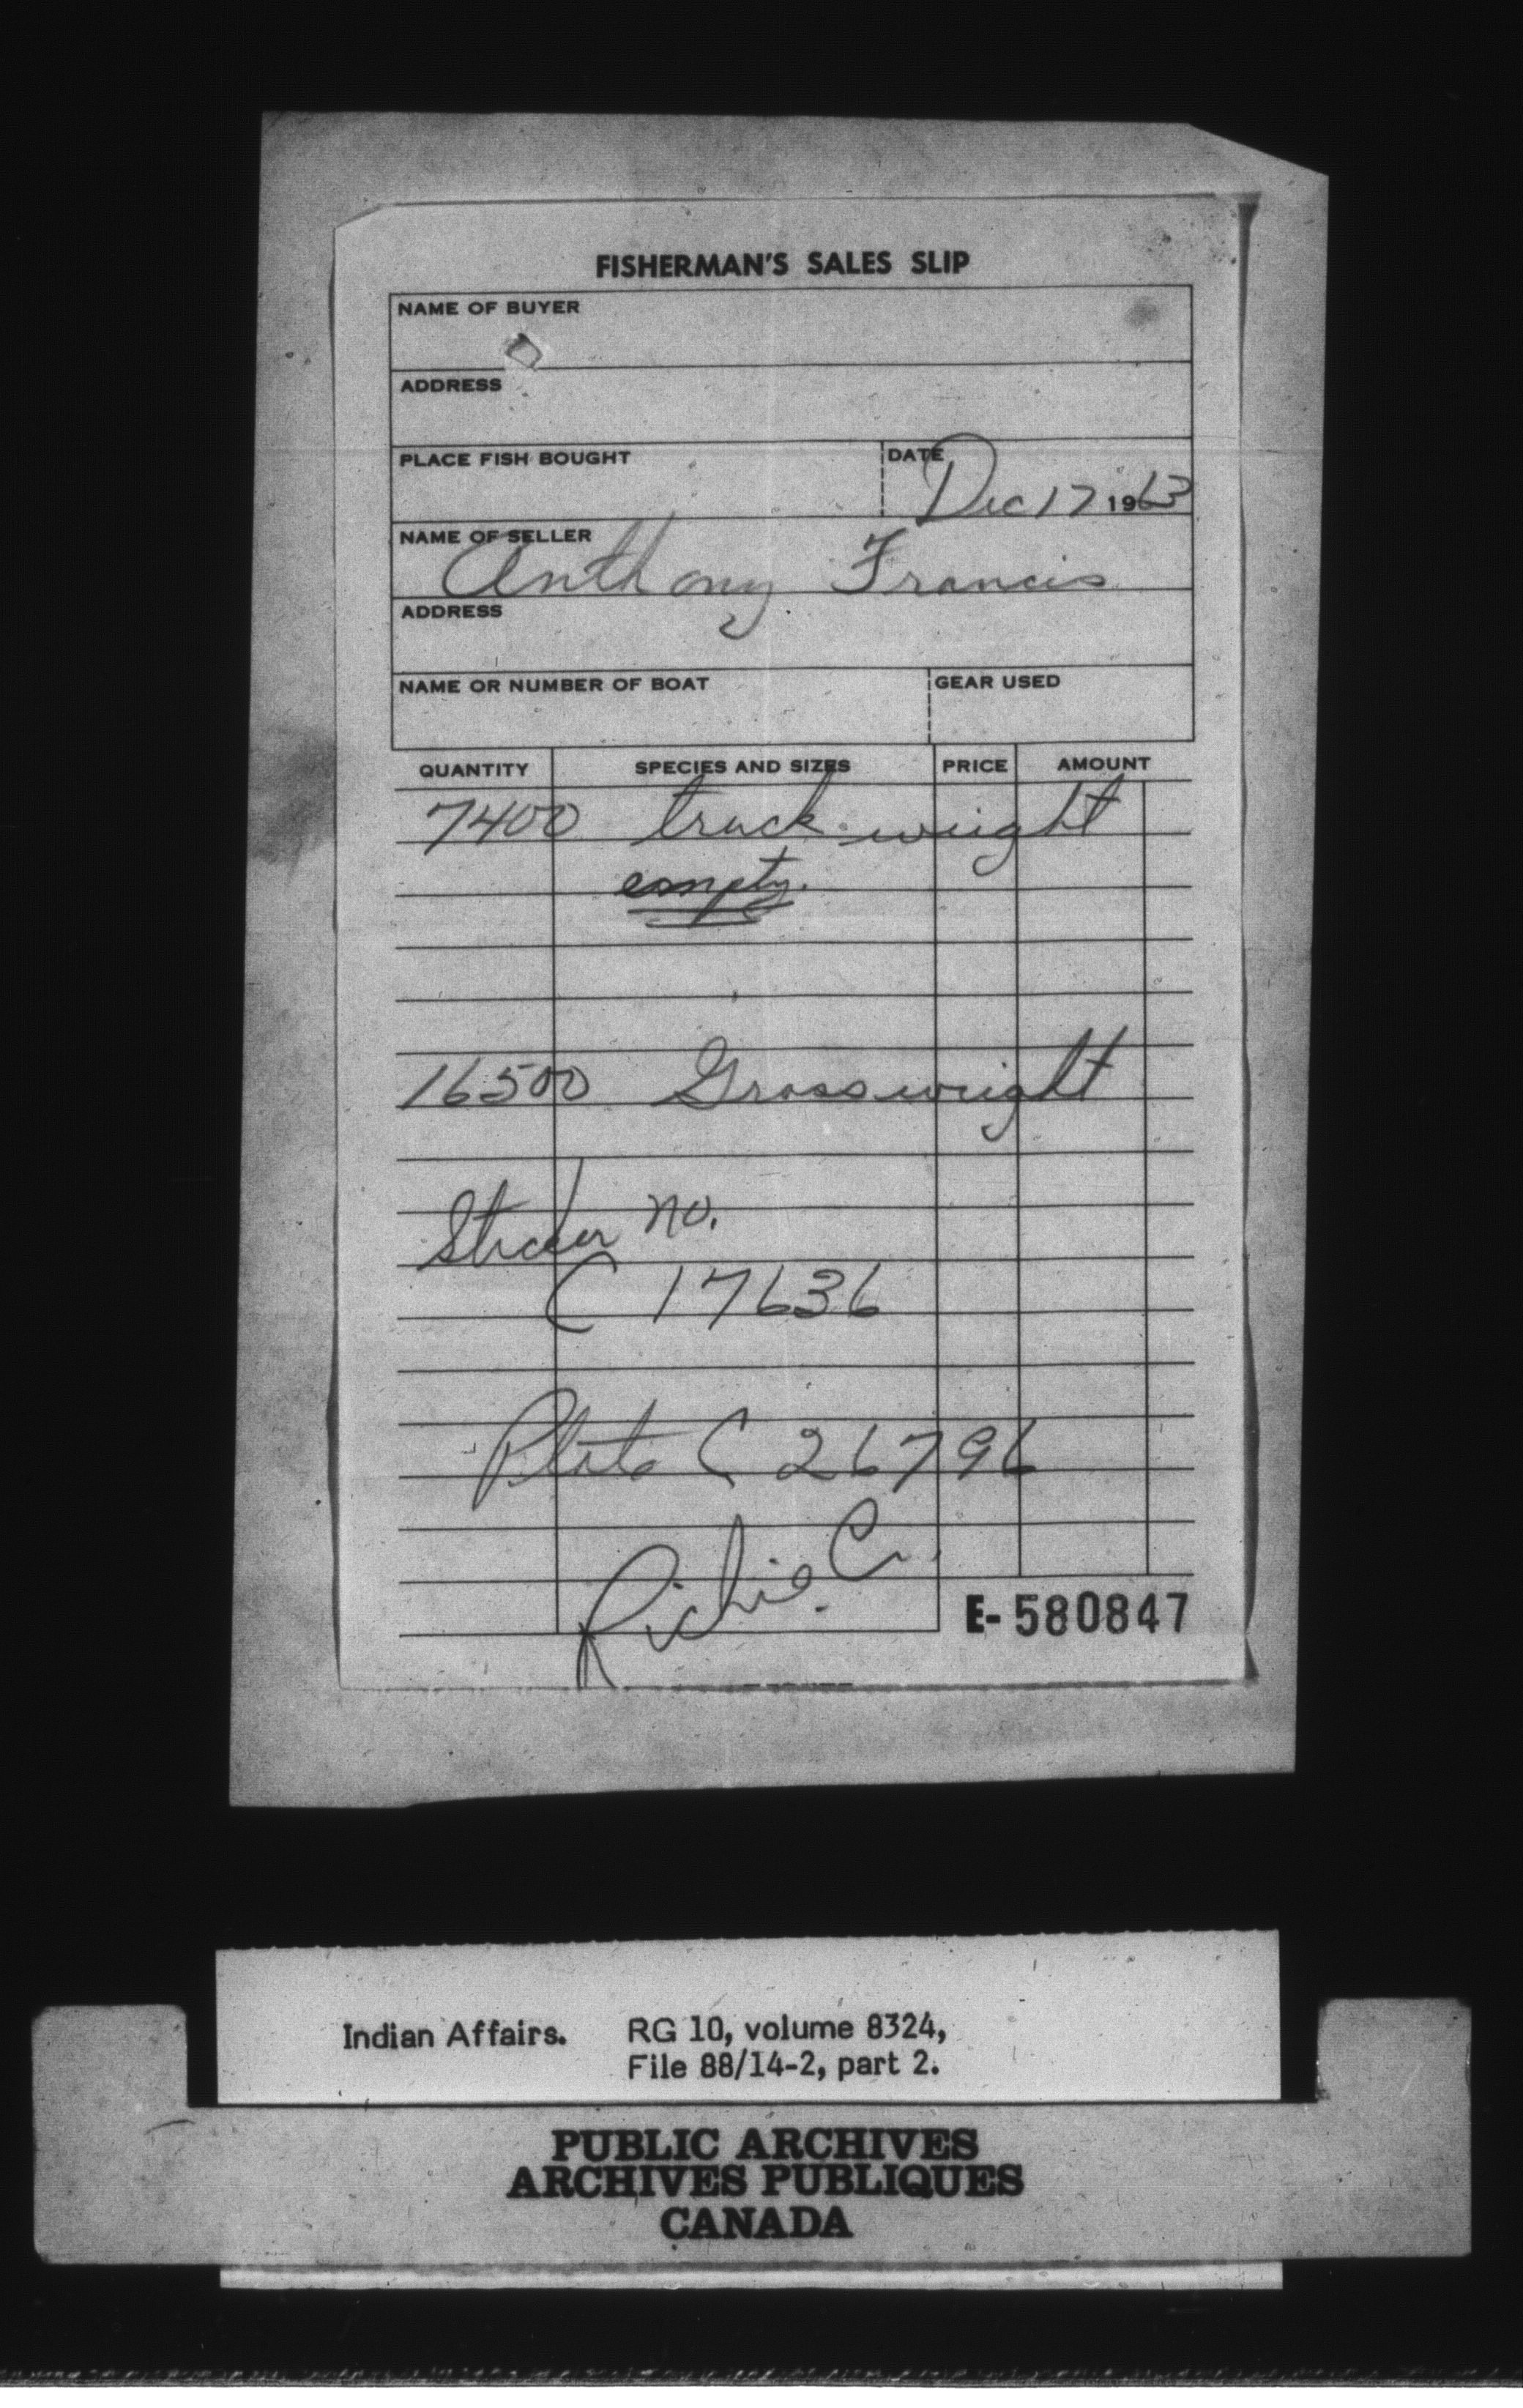 FISHERMAN'S SALES SLIP
NAME OF BUYER
ADDRESS
PLACE FISH BOUGHT DATE Dec 17 1963
NAME OF SELLER
Anthony Francis
ADDRESS
NAME OR NUMBER OF BOAT GEAR USED
QUANTITY SPECIES AND SIZES PRICE AMOUNT
7400 truck weight
empty.
16500 Gross weight
Sticker no.
C 17636
Plate C 26796
Richie C.
E-580847
Indian Affairs. RG 10, volume 8324,
File 88/14-2, part 2.
PUBLIC ARCHIVES
ARCHIVES PUBLIQUES
CANADA